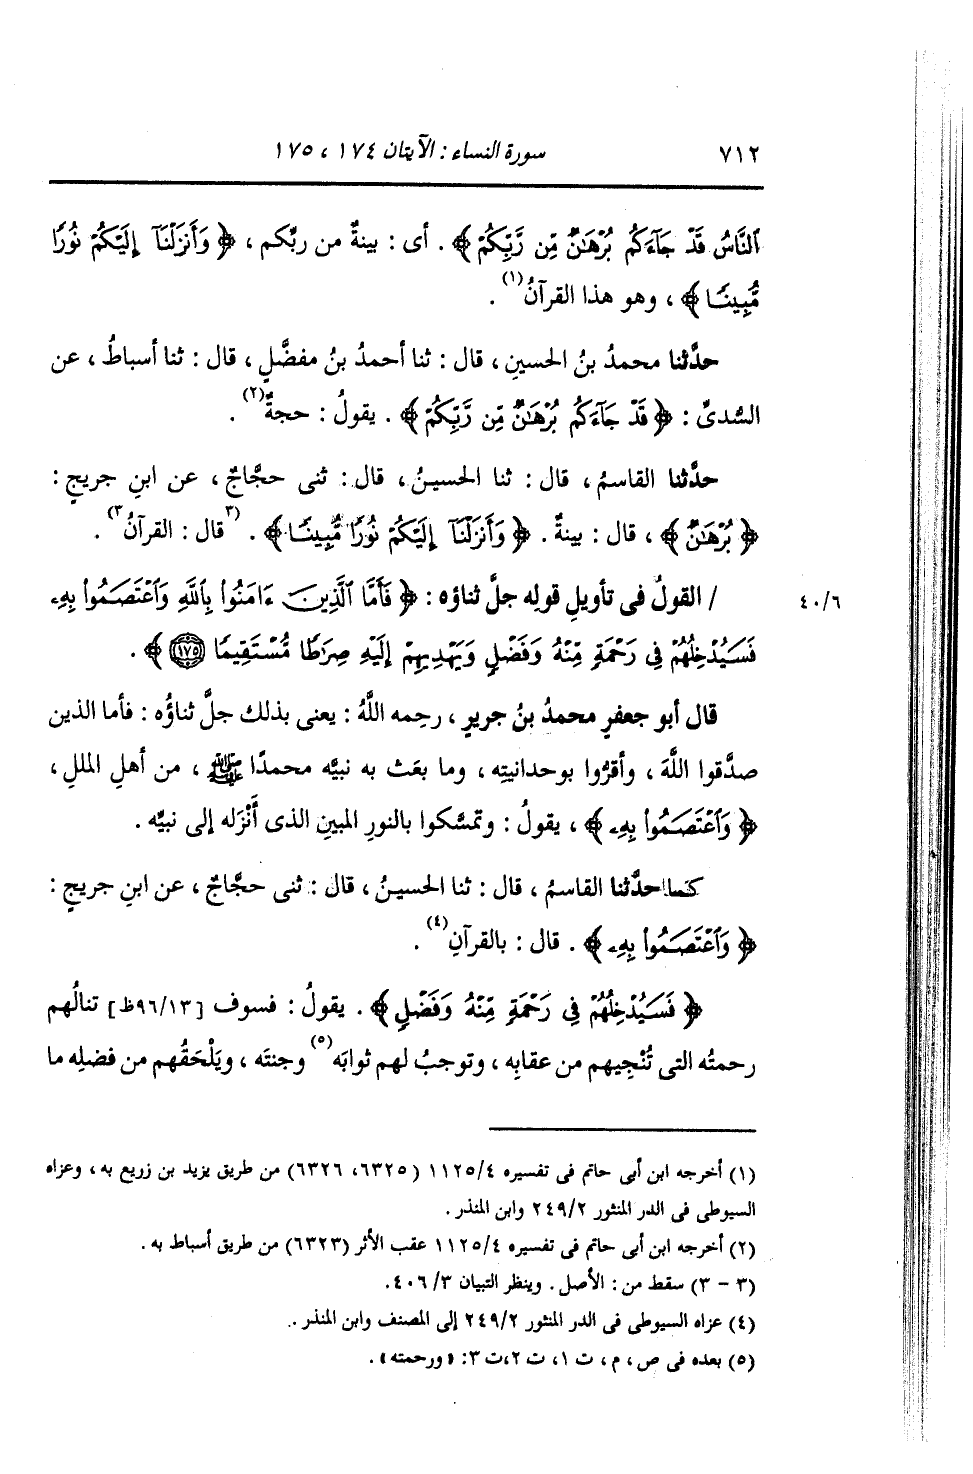 ٧١٢ سورة النساء : الآيتان ١٧٤ ، ١٧٥
ٱلنَّاسُ قَدْ جَآءَكُم بُرْهَـٰنٌ مِّن رَّبِّكُمْ ﴾ . أى : بينةٌ من ربِّكم ، ﴿ وَأَنزَلْنَآ إِلَيْكُمْ نُورًا
مُّبِينًـا ﴾ ، وهو هذا القرآنُ(١) .
حدَّثنا محمدُ بنُ الحسينِ ، قال : ثنا أحمدُ بنُ مفضَّلٍ ، قال : ثنا أسباطُ ، عن
السُّدىِّ : ﴿ قَدْ جَآءَكُم بُرْهَـٰنٌ مِّن رَّبِّكُمْ ﴾ . يقولُ : حجةٌ(٢) .
حدَّثنا القاسمُ ، قال : ثنا الحسينُ ، قال : ثنى حجَّاجٌ ، عن ابنِ جريجٍ :
﴿ بُرْهَـٰنٌ ﴾ ، قال : بينةٌ . ﴿ وَأَنزَلْنَآ إِلَيْكُمْ نُورًا مُّبِينًـا ﴾ . (٣قال : القرآنُ٣) .
٤٠/٦ / القولُ فى تأويلِ قولِه جلَّ ثناؤه : ﴿ فَأَمَّا ٱلَّذِينَ ءَامَنُوا۟ بِٱللَّهِ وَٱعْتَصَمُوا۟ بِهِۦ
فَسَيُدْخِلُهُمْ فِى رَحْمَةٍ مِّنْهُ وَفَضْلٍ وَيَهْدِيهِمْ إِلَيْهِ صِرَٰطًا مُّسْتَقِيمًا ١٧٥ ﴾ .
قال أبو جعفرٍ محمدُ بنُ جريرٍ ، رحِمه اللَّهُ : يعنى بذلك جلَّ ثناؤُه : فأما الذين
صدَّقوا اللَّهَ ، وأقرُّوا بوحدانيتِه ، وما بعَث به نبيَّه محمدًا ﷺ ، من أهلِ المللِ ،
﴿ وَٱعْتَصَمُوا۟ بِهِۦ ﴾ ، يقولُ : وتمسَّكوا بالنورِ المبينِ الذى أَنْزَله إلى نبيِّه .
كما حدَّثنا القاسمُ ، قال : ثنا الحسينُ ، قال : ثنى حجَّاجٌ ، عن ابنِ جريجٍ :
﴿ وَٱعْتَصَمُوا۟ بِهِۦ ﴾ . قال : بالقرآنِ(٤) .
﴿ فَسَيُدْخِلُهُمْ فِى رَحْمَةٍ مِّنْهُ وَفَضْلٍ ﴾ . يقولُ : فسوف [٩٦/١٣ظ] تنالُهم
رحمتُه التى تُنْجِيهم من عقابِه ، وتوجبُ لهم ثوابَه(٥) وجنتَه ، ويَلْحَقُهم من فضلِه ما
(١) أخرجه ابن أبى حاتم فى تفسيره ١١٢٥/٤ (٦٣٢٥، ٦٣٢٦) من طريق يزيد بن زريع به ، وعزاه
السيوطى فى الدر المنثور ٢٤٩/٢ وابن المنذر .
(٢) أخرجه ابن أبى حاتم فى تفسيره ١١٢٥/٤ عقب الأثر (٦٣٢٣) من طريق أسباط به .
(٣ - ٣) سقط من : الأصل . وينظر التبيان ٤٠٦/٣.
(٤) عزاه السيوطى فى الدر المنثور ٢٤٩/٢ إلى المصنف وابن المنذر .
(٥) بعده فى ص ، م ، ت ١، ت ٢، ت ٣: « ورحمته » .